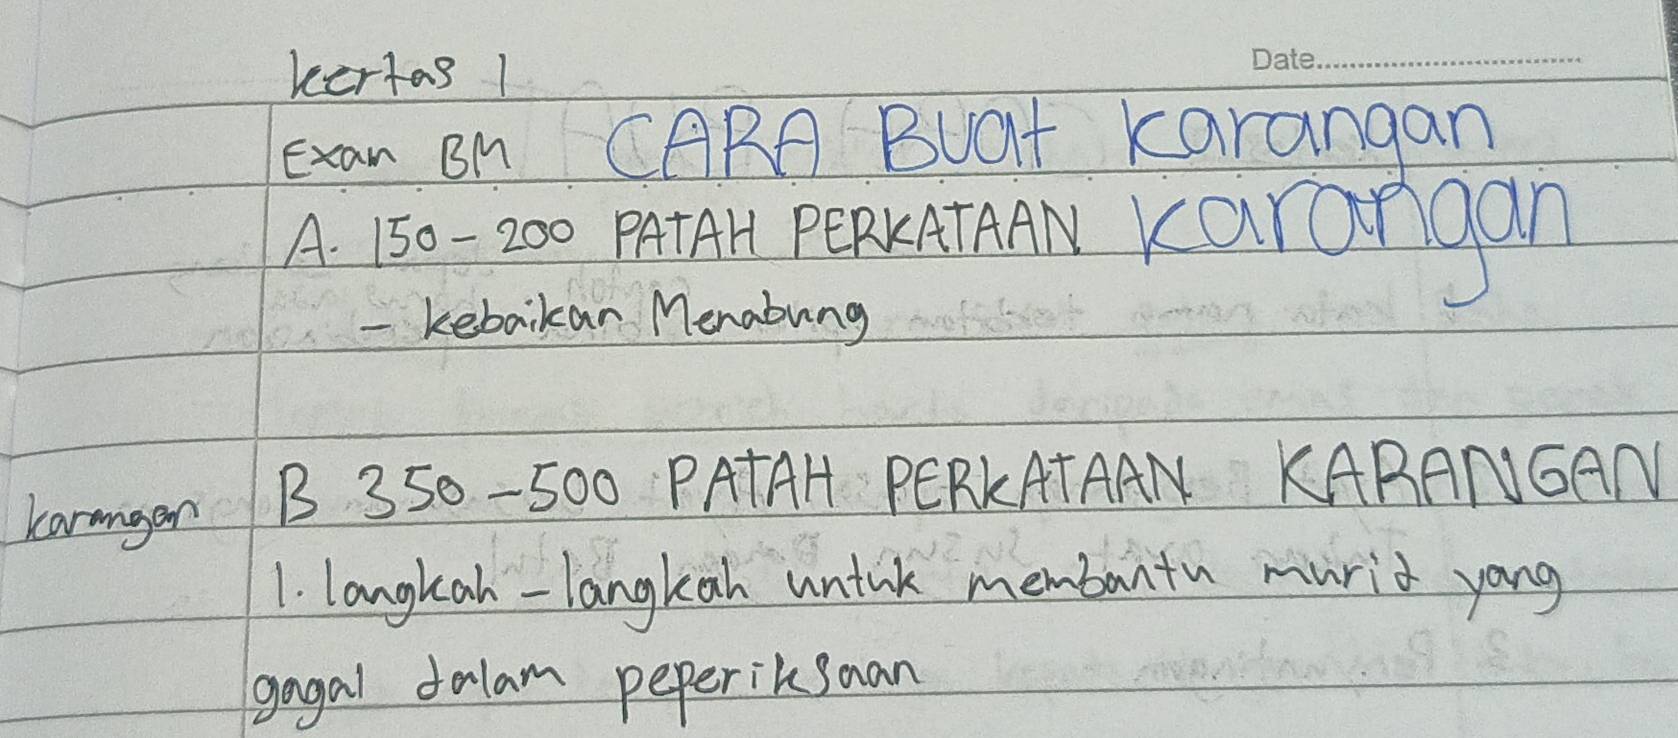 kertas 1
Date
Exam BM CARA Buat karangan
A. 150 - 200 PATAH PERKATAAN karangan
- kebaikan Menabung
B 350 - 500 PATAH PERKATAAN KARANGAN
karangan
1. langkah - langkah untuk membantu murid yang
gagal dalam peperiksaan